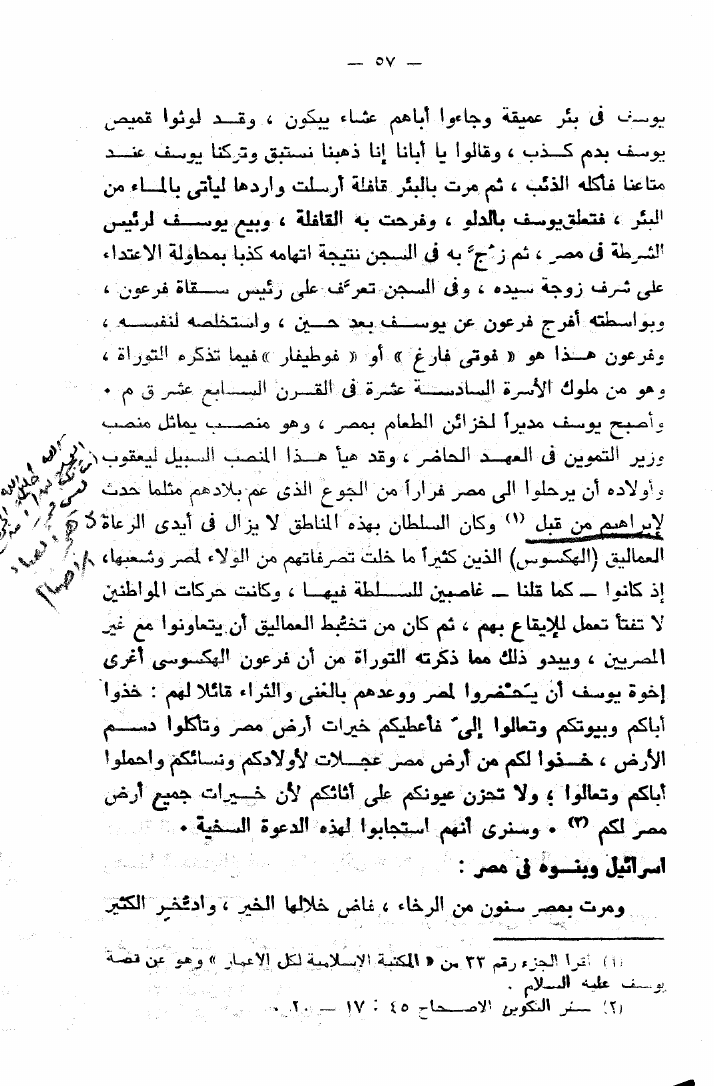 — ٥٧ —
يوسف فى بئر عميقة وجاءوا أباهم عشاء يبكون ، وقد لوثوا قميص
يوسف بدم كذب ، وقالوا يا أبانا إنا ذهبنا نستبق وتركنا يوسف عند
متاعنا فأكله الذئب ، ثم مرت بالبئر قافلة أرسلت واردها ليأتى بالماء من
البئر ، فتعلق يوسف بالدلو ، وفرحت به القافلة ، وبيع يوسف لرئيس
الشرطة فى مصر ، ثم زُجَّ به فى السجن نتيجة اتهامه كذبا بمحاولة الاعتداء
على شرف زوجة سيده ، وفى السجن تعرَّف على رئيس سقاة فرعون ،
وبواسطته أفرج فرعون عن يوسف بعد حين ، واستخلصه لنفسه ،
وفرعون هذا هو « فوتى فارغ » أو « فوطيفار » فيما تذكره التوراة ،
وهو من ملوك الأسرة السادسة عشرة فى القرن السابع عشر ق م .
وأصبح يوسف مديراً لخزائن الطعام بمصر ، وهو منصب يماثل منصب
وزير التموين فى العهد الحاضر ، وقد هيأ هذا المنصب السبيل ليعقوب
وأولاده أن يرحلوا الى مصر فراراً من الجوع الذى عم بلادهم مثلما حدث
لإبراهيم من قبل (١) وكان السلطان بهذه المناطق لا يزال فى أيدى الرعاة
العماليق (الهكسوس) الذين كثيراً ما خلت تصرفاتهم من الولاء لمصر وشعبها،
إذ كانوا — كما قلنا — غاصبين للسلطة فيها ، وكانت حركات المواطنين
لا تفتأ تعمل للإيقاع بهم ، ثم كان من تخبُّط العماليق أن يتعاونوا مع غير
المصريين ، ويبدو ذلك مما ذكرته التوراة من أن فرعون الهكسوسى أغرى
إخوة يوسف أن يَحْضروا لمصر ووعدهم بالغنى والثراء قائلا لهم : خذوا
أباكم وبيوتكم وتعالوا إلىّ فأعطيكم خيرات أرض مصر وتأكلوا دسم
الأرض ، خذوا لكم من أرض مصر عجلات لأولادكم ونسائكم واحملوا
أباكم وتعالوا ؛ ولا تحزن عيونكم على أثاثكم لأن خيرات جميع أرض
مصر لكم (٢) . وسنرى أنهم استجابوا لهذه الدعوة السخية .
اسرائيل وبنوه فى مصر :
ومرت بمصر سنون من الرخاء ، فاض خلالها الخير ، وادُّخر الكثير
(١) اقرأ الجزء رقم ٢٣ من « المكتبة الاسلامية لكل الاعمار » وهو عن قصة
يوسف عليه السلام .
(٢) سفر التكوين الاصحاح ٤٥ : ١٧ — ٢٠ .